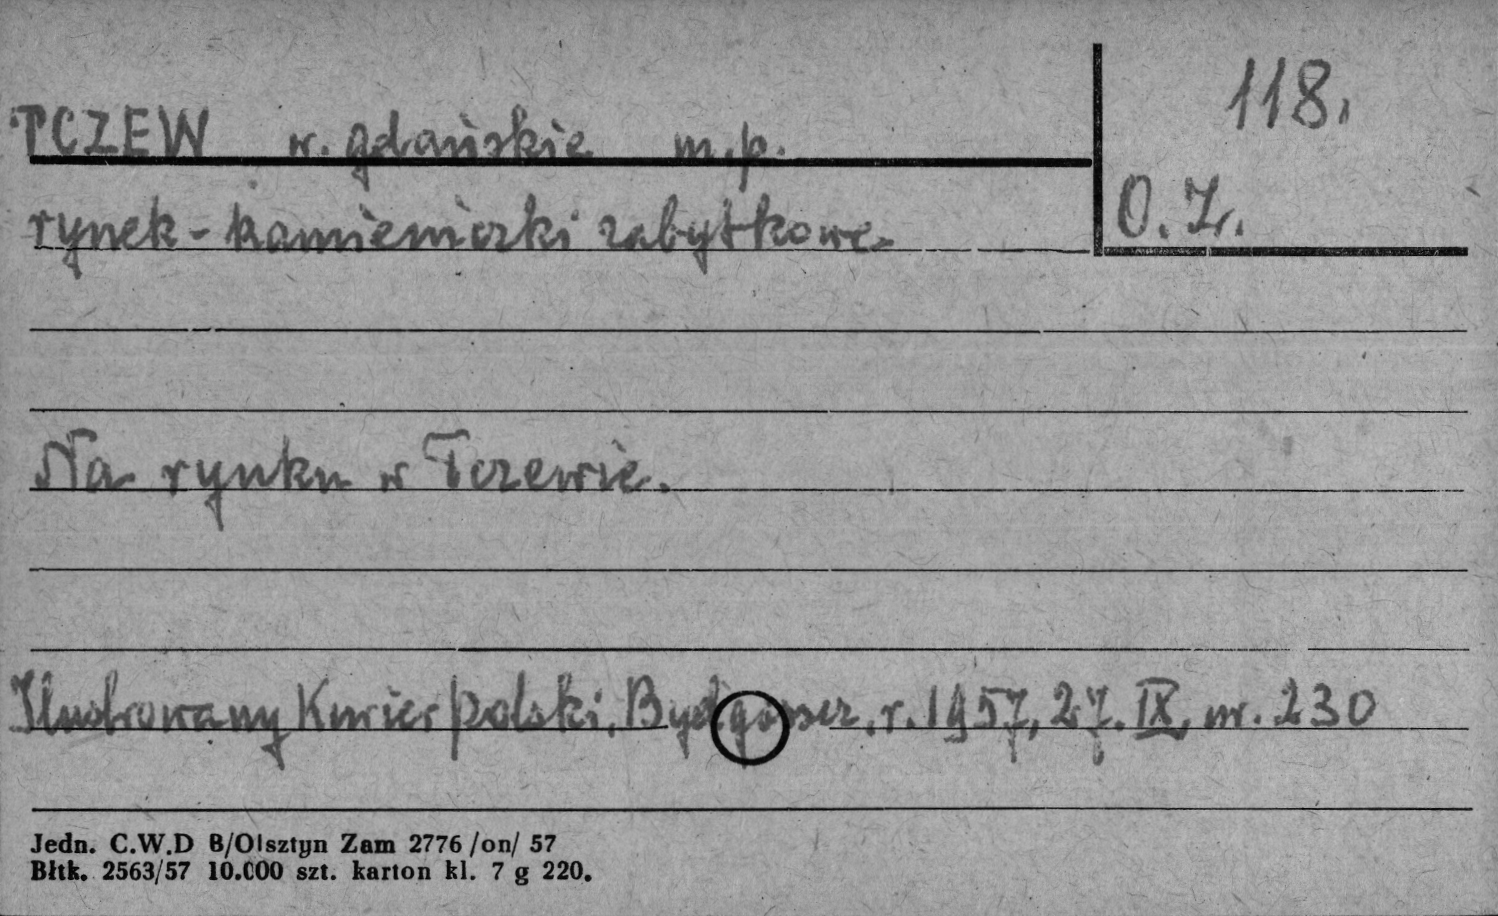 TCZEW w. gdańskie m.p.
118.
rynek - kamieniczki zabytkowe.
O. Z.
Na rynku w Tczewie.
Ilustrowany Kurier Polski, Bydgoszcz, r. 1957, 27. IX, nr. 230
Jedn. C.W.D B/Olsztyn Zam 2776 /on/ 57
Błtk. 2563/57 10.000 szt. karton kl. 7 g 220.